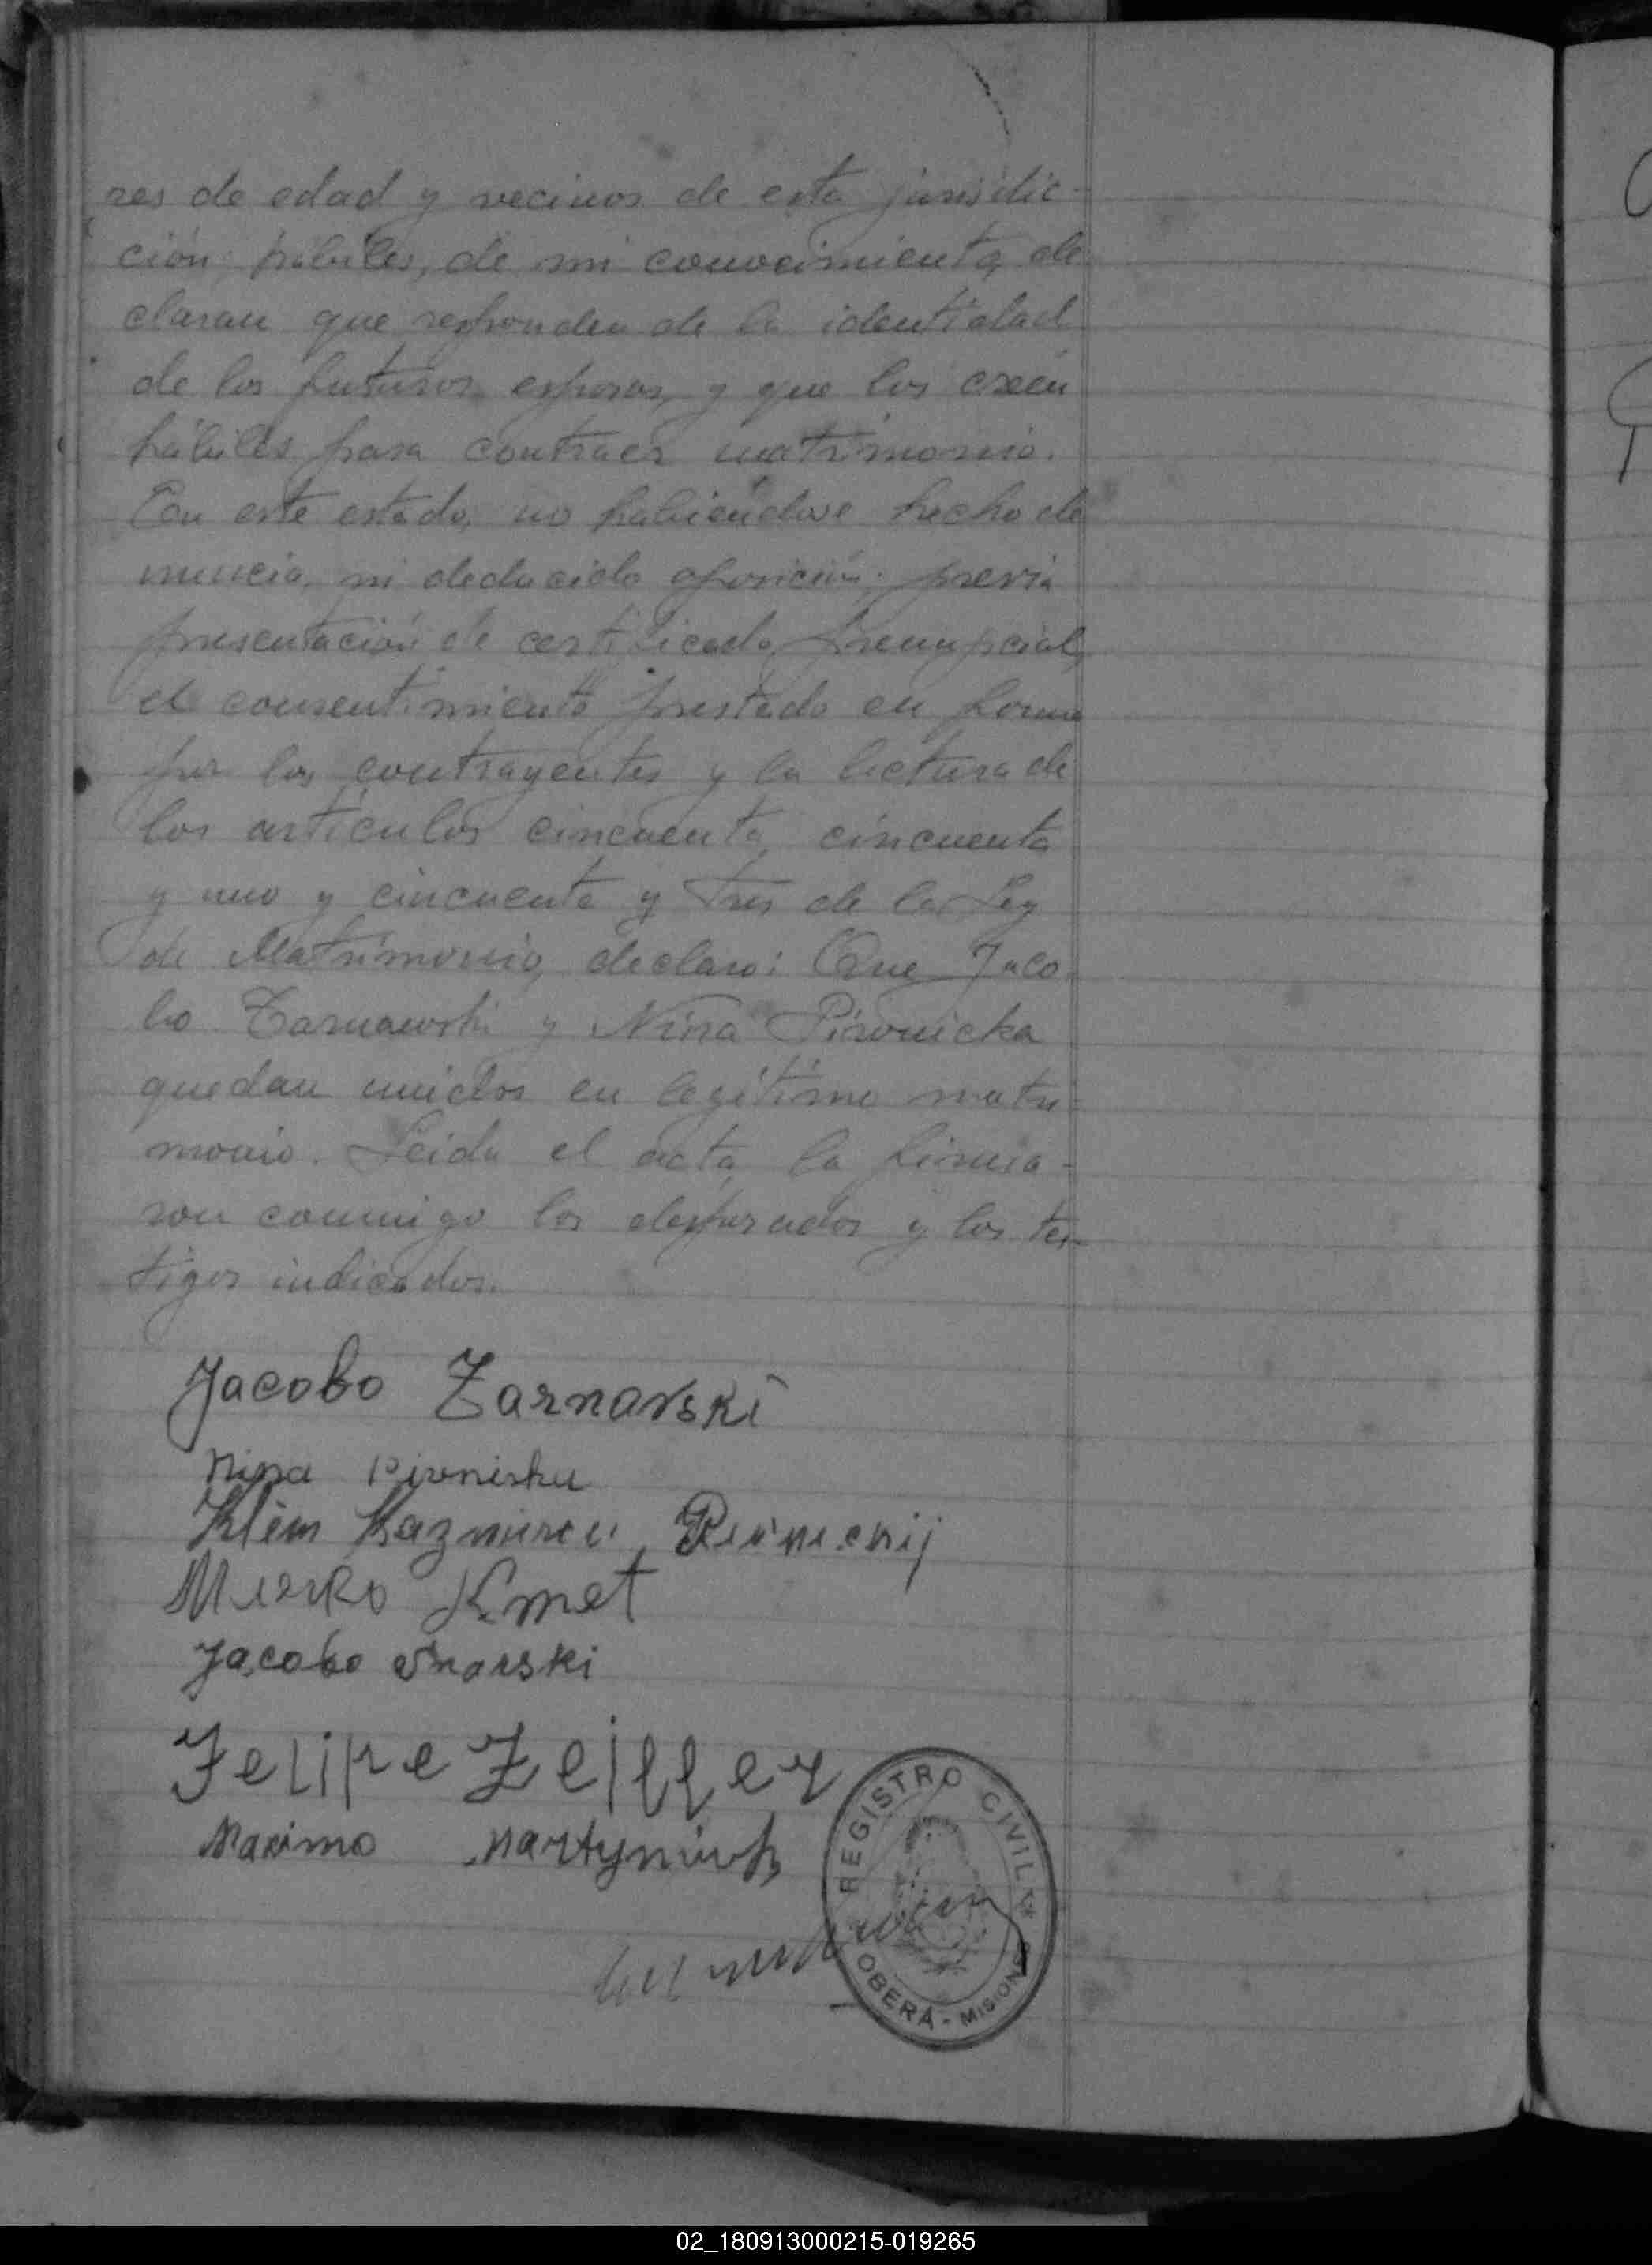 res de edad y vecinos de esta jurisdic-
ción, hábiles, de mi conocimiento, de
claran que responden de la identidad
de los futuros esposos, y que los creén
hábiles para contraer matrimonio.
En este estado, no habiendose hecho de
nuncia, ni deducido oposición; previa
presentación de certificado prenupcial,
el consentimiento prestado en forma
por los contrayentes y la lectura de
los artículos cincuenta, cincuenta
y uno y cincuenta y tres de la Ley
de Matrimonio, declaro: Que Jaco
bo Tarnawski y Nina Piwnicka
quedan unidos en legítimo matri-
monio. Leida el acta, la firma-
ron conmigo los desposados y los tes-
tigos indicados.
Jacobo Tarnavski
Nina
Klem
Mirko Kmet
Jacobo
Felipe Zeiffer
Maximo Martyniuk
REGISTRO CIVIL
OBERÁ - MISIONES
02_180913000215-019265